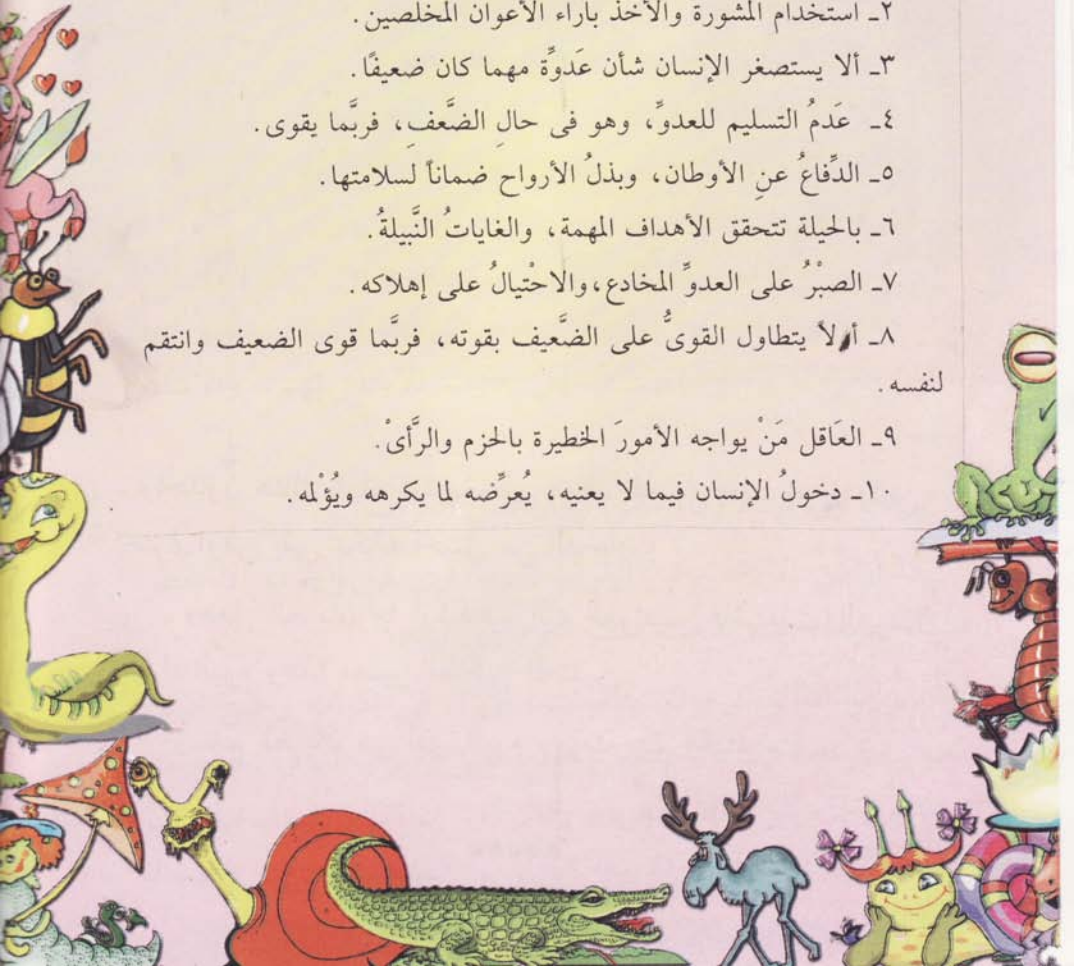 ٢ـ استخدام المشورة والأخذ بآراء الأعوان المخلصين.
٣ـ ألا يستصغر الإنسان شأن عَدوِّة مهما كان ضعيفًا.
٤ـ عَدمُ التسليم للعدوِّ، وهو فى حالِ الضَّعفِ، فربَّما يقوى.
٥ـ الدِّفاعُ عنِ الأوطان، وبذلُ الأرواح ضماناً لسلامتها.
٦ـ بالحيلة تتحقق الأهداف المهمة، والغاياتُ النَّبيلةُ.
٧ـ الصبْرُ على العدوِّ المخادع، والاحْتيالُ على إهلاكه.
٨ـ أولاً يتطاول القوىُّ على الضَّعيف بقوته، فربَّما قوى الضعيف وانتقم
لنفسه.
٩ـ العَاقل مَنْ يواجه الأمورَ الخطيرة بالحزم والرَّأىْ.
١٠ـ دخولُ الإنسان فيما لا يعنيه، يُعرِّضه لما يكرهه ويُؤْلمه.